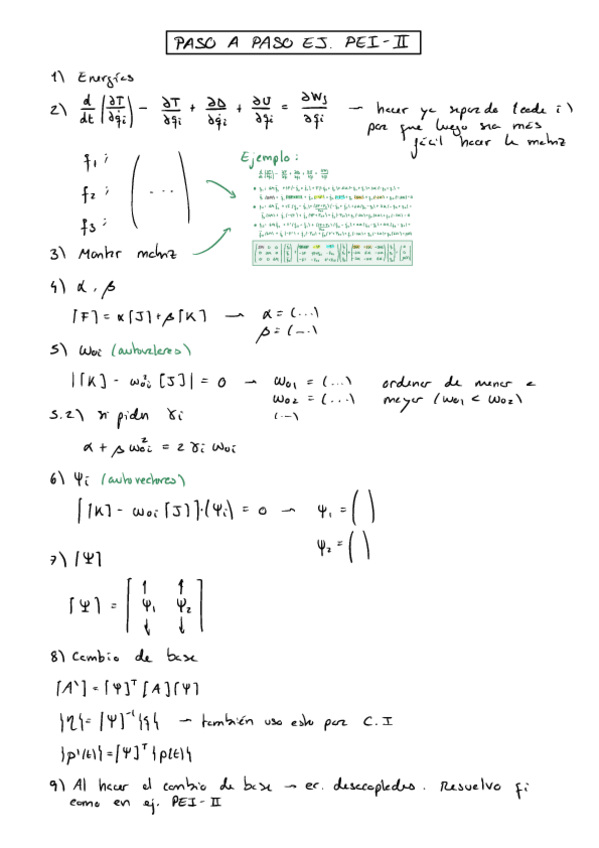 PASO A PASO EJ. PEI-II
1) Energías
2) d/dt (∂T/∂q̇i) - ∂T/∂qi + ∂D/∂q̇i + ∂U/∂qi = ∂Wf/∂qi → hacer ya separado (cada i)
porque luego sea más
fácil hacer la matriz
f1 :
f2 : ( ... )
f3 :
Ejemplo :
3) Montar matriz
4) α, β
[F] = α[J] + β[K] → α = (...)
β = (...)
5) ω0i (autovalores)
|[K] - ω0i² [J]| = 0 → ω01 = (...) ordenar de menor a
ω02 = (...) mayor (ω01 < ω02)
(...)
5.2) si piden γi
α + β ω0i² = 2 γi ω0i
6) Ψi (autovectores)
[[K] - ω0i [J]]·(Ψi) = 0 → Ψ1 = ( )
Ψ2 = ( )
7) [Ψ]
[Ψ] = [ ↑ ↑
Ψ1 Ψ2
↓ ↓ ]
8) Cambio de base
[A'] = [Ψ]ᵀ [A] [Ψ]
{η} = [Ψ]⁻¹{q} → también uso esto par C.I
{p'(t)} = [Ψ]ᵀ {p(t)}
9) Al hacer el cambio de base → ec. desacopladas. Resuelvo fi
como en ej. PEI-II